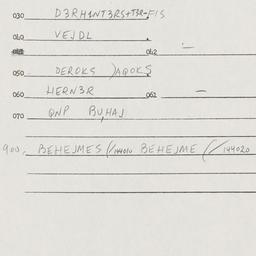 030 D3RH1NT3RS+T3R-FIS
040 VEJDL
042 —
050 DEROKS JAQOKS
060 HERN3R 062 —
070 QNP BUHAJ
900: BEHEJMES (/144010 BEHEJME (/144020